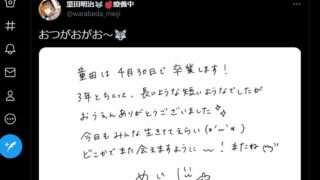 童田明治🐺🍎療養中
@warabeda_meiji
おつがおがお～🐺
童田は 4月30日で 卒業します!
3年とちょっと、長いような短いようなでしたが
おうえんありがとうございました
今日もみんな生きててえらい(*'w'*)
どこかでまた会えますように〜! またね
めいじ